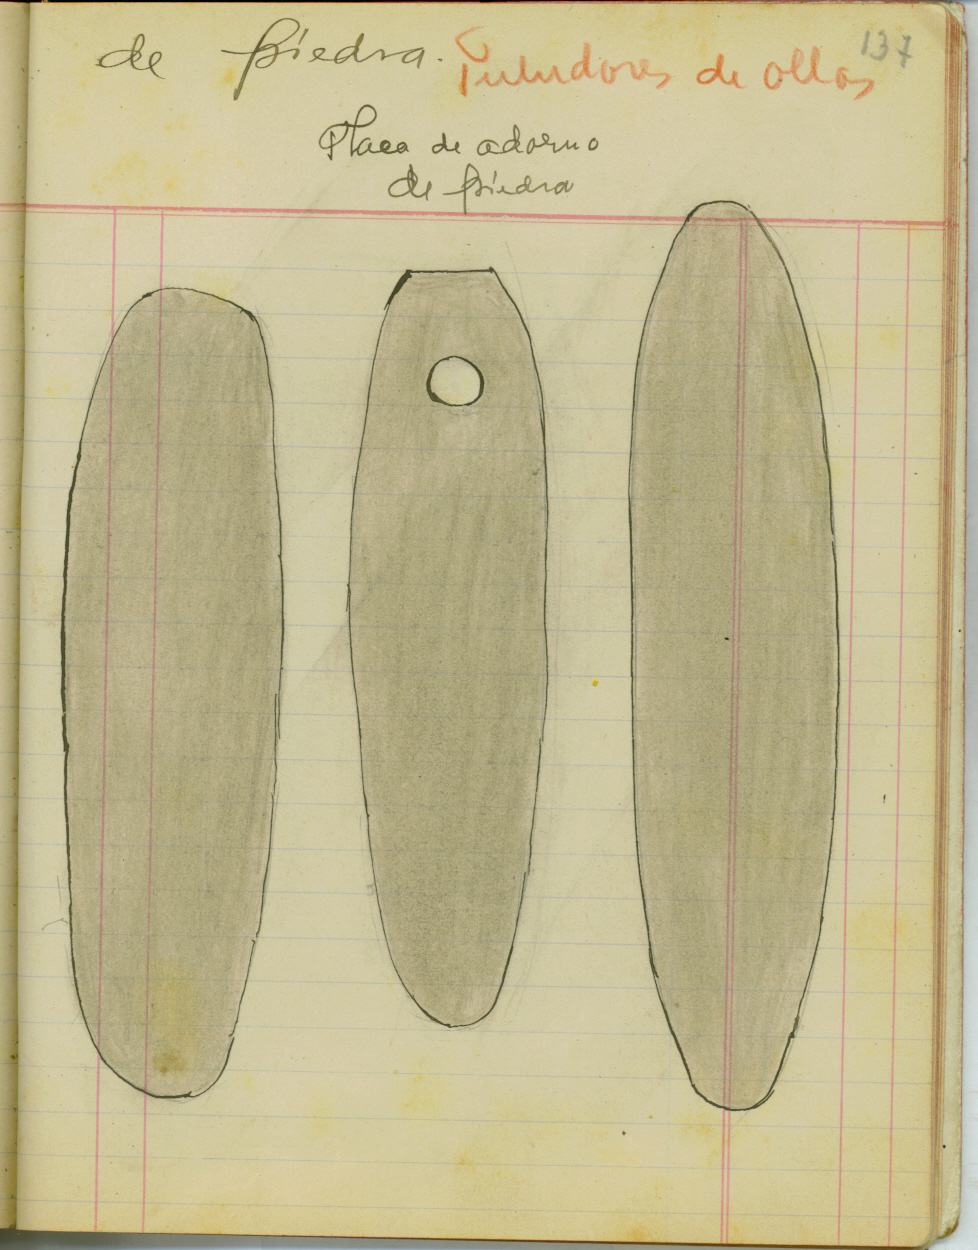 137
de piedra. Puludores de ollas
Placa de adorno
de piedra